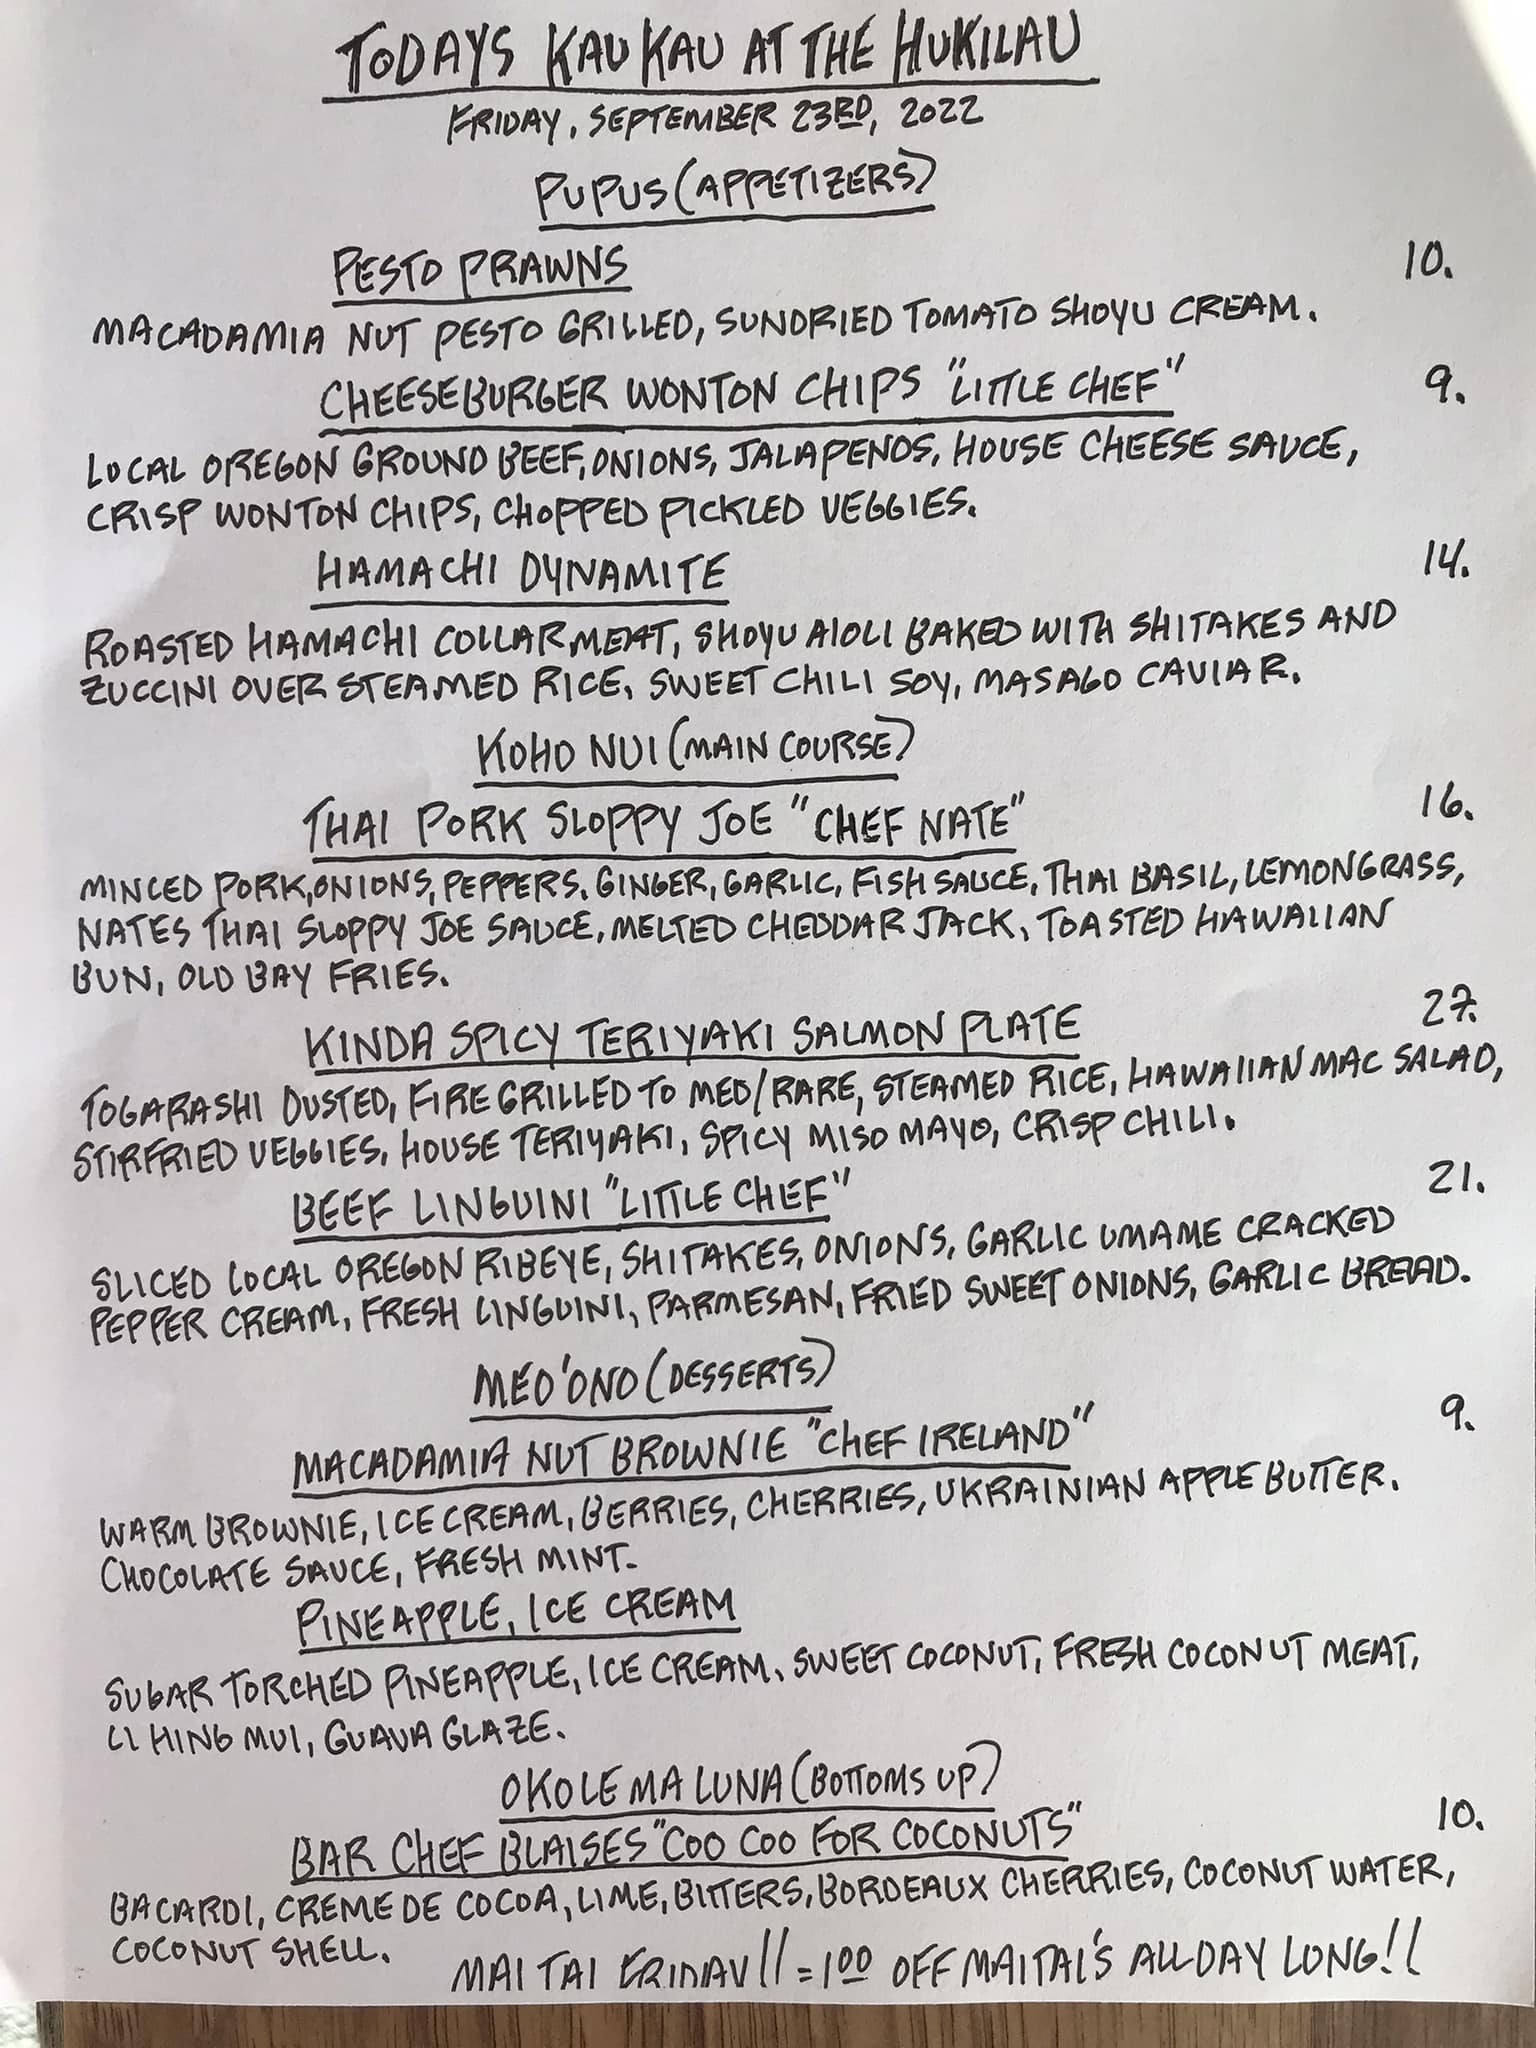 TODAYS KAU KAU AT THE HUKILAU
FRIDAY, SEPTEMBER 23RD, 2022
PUPUS (APPETIZERS)
PESTO PRAWNS 10.
MACADAMIA NUT PESTO GRILLED, SUNDRIED TOMATO SHOYU CREAM.
CHEESEBURGER WONTON CHIPS "LITTLE CHEF" 9.
LOCAL OREGON GROUND BEEF, ONIONS, JALAPENOS, HOUSE CHEESE SAUCE,
CRISP WONTON CHIPS, CHOPPED PICKLED VEGGIES.
HAMACHI DYNAMITE 14.
ROASTED HAMACHI COLLAR MEAT, SHOYU AIOLI BAKED WITH SHITAKES AND
ZUCCINI OVER STEAMED RICE, SWEET CHILI SOY, MASAGO CAVIAR.
KOHO NUI (MAIN COURSE)
THAI PORK SLOPPY JOE "CHEF NATE" 16.
MINCED PORK, ONIONS, PEPPERS, GINGER, GARLIC, FISH SAUCE, THAI BASIL, LEMONGRASS,
NATES THAI SLOPPY JOE SAUCE, MELTED CHEDDAR JACK, TOASTED HAWAIIAN
BUN, OLD BAY FRIES.
KINDA SPICY TERIYAKI SALMON PLATE 27.
TOGARASHI DUSTED, FIRE GRILLED TO MED/RARE, STEAMED RICE, HAWAIIAN MAC SALAD,
STIRFRIED VEGGIES, HOUSE TERIYAKI, SPICY MISO MAYO, CRISP CHILI.
BEEF LINGUINI "LITTLE CHEF" 21.
SLICED LOCAL OREGON RIBEYE, SHITAKES, ONIONS, GARLIC UMAME CRACKED
PEPPER CREAM, FRESH LINGUINI, PARMESAN, FRIED SWEET ONIONS, GARLIC BREAD.
MEO'ONO (DESSERTS)
MACADAMIA NUT BROWNIE "CHEF IRELAND" 9.
WARM BROWNIE, ICE CREAM, BERRIES, CHERRIES, UKRAINIAN APPLE BUTTER.
CHOCOLATE SAUCE, FRESH MINT.
PINEAPPLE, ICE CREAM
SUGAR TORCHED PINEAPPLE, ICE CREAM, SWEET COCONUT, FRESH COCONUT MEAT,
LI HING MUI, GUAVA GLAZE.
OKOLE MA LUNA (BOTTOMS UP)
BAR CHEF BLAISES "COO COO FOR COCONUTS" 10.
BACARDI, CREME DE COCOA, LIME, BITTERS, BORDEAUX CHERRIES, COCONUT WATER,
COCONUT SHELL.
MAI TAI FRIDAY!! = 1.00 OFF MAI TAI'S ALL DAY LONG!!